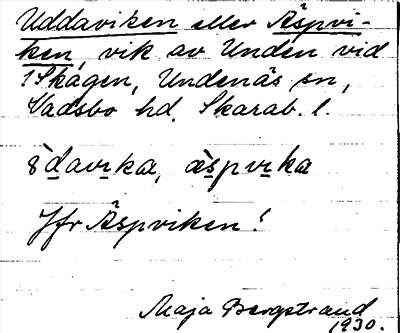 Uddaviken eller Äspvi-
ken, vik av Unden vid
Skagen, Undenäs sn,
Vadsbo hd. Skarab. l.
äspvika
Jfr Äspviken!
Maja Bergstrand
1930.